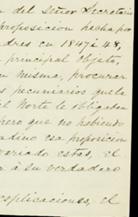 del Señor Secretario
proposicion hecha por
dres en 1847 i 48,
principal objeto,
n misma, procurar
s pecuniarios que la
l Norte le obligaban
ero que no habiendo
adino esa proposicion
variado estas, el
á su verdadero
esplicaciones, el